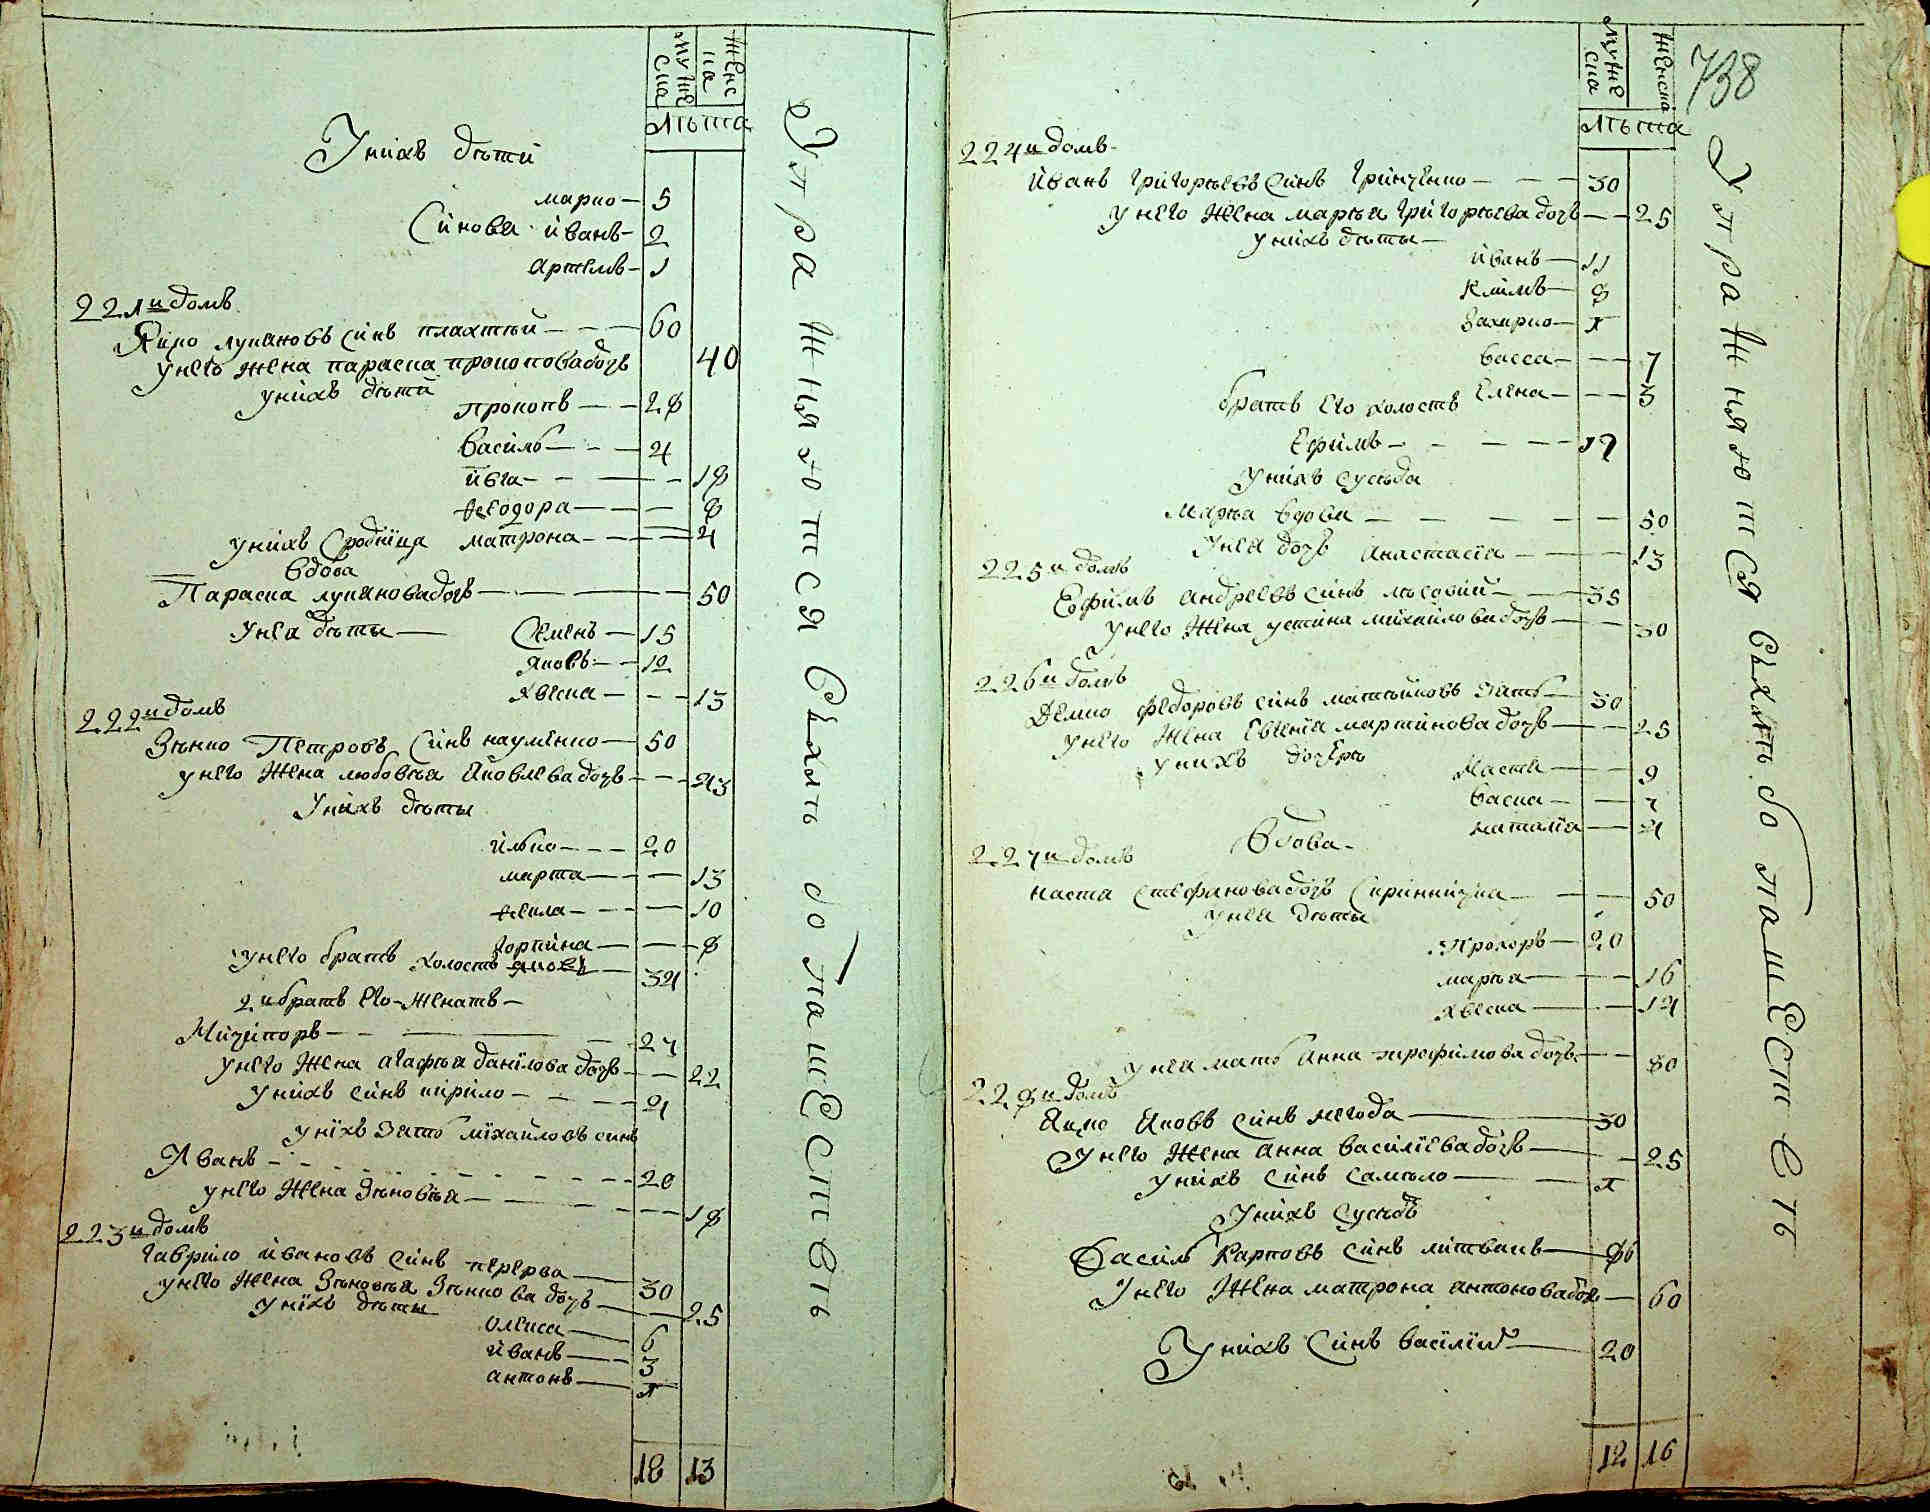 мужеска женска
лѣта
Унихъ дѣти
марко — 5
Синови иванъ — 2
артемъ — 1
221й домъ
Яцко лукановъ синъ плахтѣй — — — 60
унего жена параска прокопова дочъ 40
унихъ дѣти
прокопъ — — 28
василь — — 4
ивга — — — — 18
ѳеодора — — — 8
унихъ сродница матрона — — — 4
вдова
Параска луканова дочъ — — — — 50
унея дѣты — Семенъ — 15
яковъ — — 12
хвеска — — — 13
222й домъ
Зѣнко Петровъ синъ науменко — 50
унего жена любовъя яковлева дочъ — — 43
Унихъ дѣты
илько — — — 20
марта — — — 13
ѳекла — — — 10
горпина — — — 8
унего братъ холостъ яковъ — 34
2й братъ его женатъ —
Ничипоръ — — — 27
унего жена агафья данілова дочъ — — 22
унихъ синъ кирило — — — 4
уніхъ зять міхайловъ синъ
Иванъ — — — — — 20
унего жена зѣновъя — — — — 18
223й домъ
гаврило ивановъ синъ перерва — 30
унего жена Зѣновъя Зѣнкова дочъ — — 25
уніхъ дѣты
олекса — 6
иванъ — 3
антонъ — 1
18 13
У п р а ж н я ю т с я въ хлѣбо п а ш е с т в ѣ
738
мужеска женска
лѣта
224й домъ
иванъ григорьевъ синъ гринченко — — — 30
унего жена марья григорьева дочъ — — 25
унихъ дѣты —
иванъ — 11
климъ — 8
захарко — 1
васса — — — 7
елена — — — 3
братъ его холостъ
ефимъ — — — — — 17
унихъ сусѣда
марья вдова — — — — — 50
унея дочъ анастасія — — — 13
225й домъ
Ефимъ андреевъ синъ — — 35
унего жена устина михайлова дочъ — — 30
226й домъ
Демко федоровъ синъ зять — 30
унего жена евгенія мартинова дочъ — — 25
унихъ дочерѣ
Настя — — 9
васка — — 7
наталія — — 4
227й домъ Вдова —
наста стефанова дочъ — — 50
унея дѣты
Прохоръ — 20
марья — — 16
хвеска — — 14
унея мать анна трофимова дочъ — — 80
228й домъ
Яцко яковъ синъ легода — 30
унего жена анна василіева дочъ — — 25
унихъ синъ самъло — — 1
унихъ сусѣдъ
Василь карповъ синъ литвинъ — 86
унего жена матрона антонова дочъ — 60
Унихъ синъ василій — 20
12 16
У п р а ж н я ю т с я въ хлѣбо п а ш е с т в ѣ